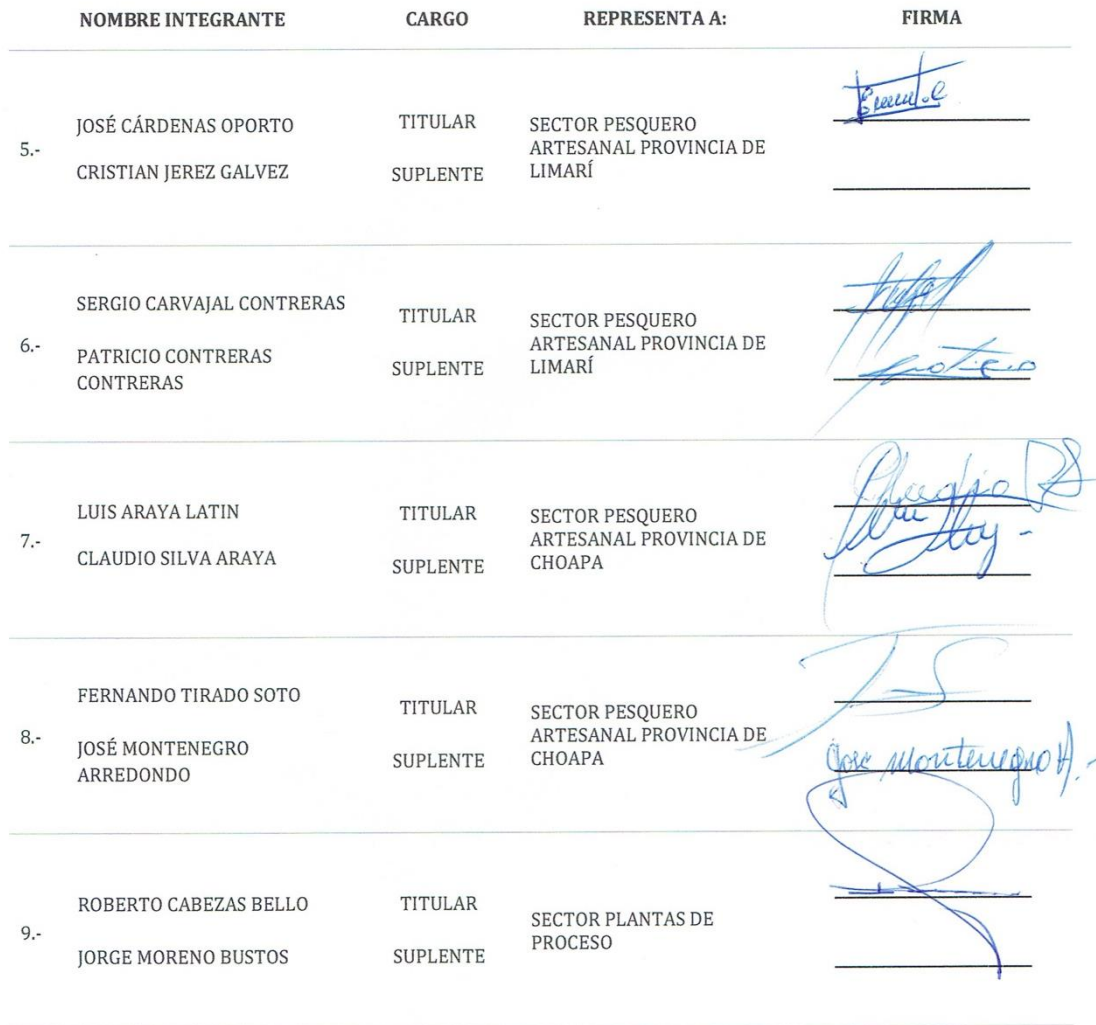 NOMBRE INTEGRANTE CARGO REPRESENTA A: FIRMA
5.-
JOSÉ CÁRDENAS OPORTO TITULAR
CRISTIAN JEREZ GALVEZ SUPLENTE
SECTOR PESQUERO
ARTESANAL PROVINCIA DE
LIMARÍ
6.-
SERGIO CARVAJAL CONTRERAS TITULAR
PATRICIO CONTRERAS
CONTRERAS
SUPLENTE
SECTOR PESQUERO
ARTESANAL PROVINCIA DE
LIMARÍ
7.-
LUIS ARAYA LATIN TITULAR
CLAUDIO SILVA ARAYA SUPLENTE
SECTOR PESQUERO
ARTESANAL PROVINCIA DE
CHOAPA
Claudio
8.-
FERNANDO TIRADO SOTO TITULAR
JOSÉ MONTENEGRO
ARREDONDO
SUPLENTE
SECTOR PESQUERO
ARTESANAL PROVINCIA DE
CHOAPA
José Montenegro A.-
9.-
ROBERTO CABEZAS BELLO TITULAR
JORGE MORENO BUSTOS SUPLENTE
SECTOR PLANTAS DE
PROCESO